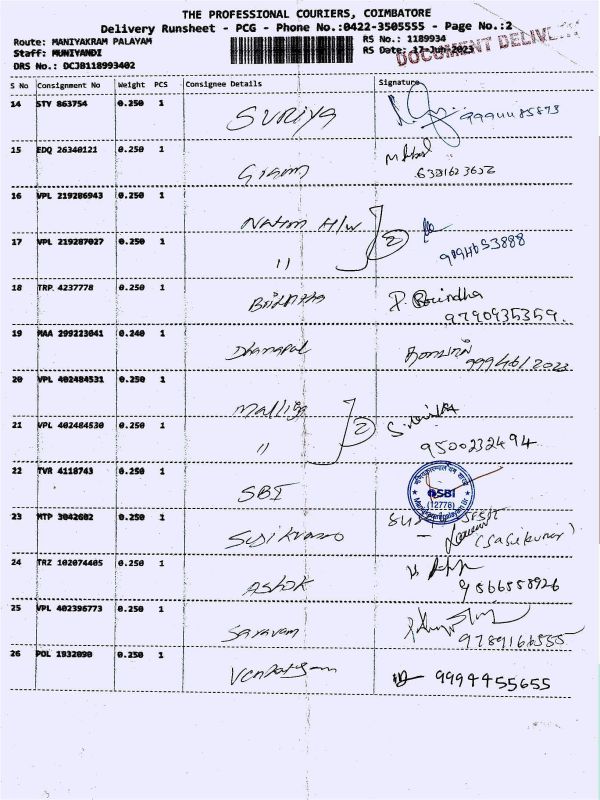 THE PROFESSIONAL COURIERS, COIMBATORE
Delivery Runsheet - PCG - Phone No.:0422-3505555 - Page No.:2
Route: MANIYAKRAM PALAYAM
RS No.: 1189934
Staff: MUNIYANDI
RS Date: 17-Jun-2023
DOCUMENT DELIV
DRS No.: DCJB118993402
S No Consignment No Weight PCS Consignee Details Signature
14 STY 863754 0.250 1 SURIYA
15 EDQ 26340121 0.250 1
16 VPL 219286943 0.250 1 H/W
17 VPL 219287027 0.250 1 " 2
18 TRP 4237778 0.250 1 P. Brindha
9790935359.
19 MAA 299223041 0.240 1 Dhanapal
20 VPL 402484531 0.250 1 Malliga
21 VPL 402484530 0.250 1 " 2
9500232494
22 TVR 4118743 0.250 1 SBI SBI
(12776)
23 MTP 3042602 0.250 1 (Sasikumar)
24 TRZ 102074405 0.250 1 ASHOK
9566558926
25 VPL 402396773 0.250 1 Saravan
9789166555
26 POL 1932090 0.250 1 9994455655